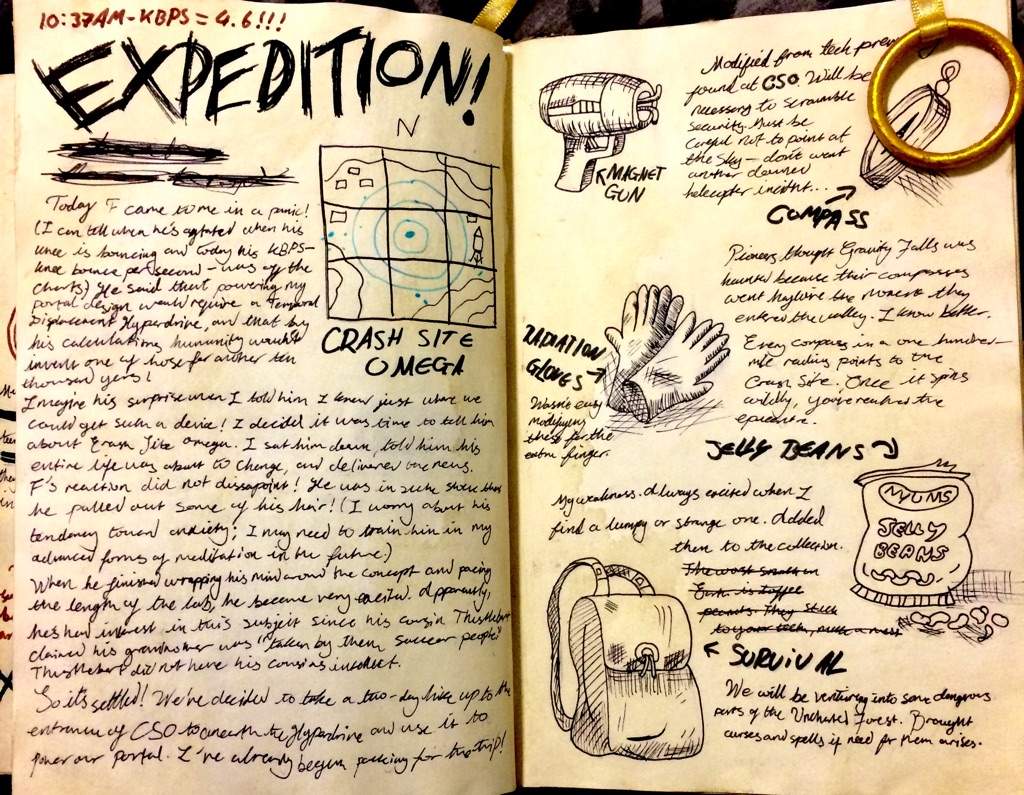 10:37AM-KBPS = 4.6!!!
EXPEDITION!
N
Today F came to me in a panic!
(I can tell when he's agitated when his
knee is bouncing and today his KBPS-
knee bounce per second - was off the
charts) He said that powering my
portal design would require a Temporal
Displacement Hyperdrive, and that by
his calculations, humanity wouldn't
invent one of those for another ten
thousand years!
CRASH SITE
OMEGA
Imagine his surprise when I told him I knew just where we
could get such a device! I decided it was time to tell him
about Crash Site Omega. I sat him down, told him his
entire life was about to change, and delivered the news.
F's reaction did not dissapoint! He was in such shock that
he pulled out some of his hair! (I worry about his
tendency toward anxiety; I may need to train him in my
advanced forms of meditation in the future.)
When he finished wrapping his mind around the concept and pacing
the length of the lab, he became very excited. Apparently,
he's had interest in this subject since his cousin Thistlebert
claimed his grandmother was "taken by them saucer people"
Thistlebert did not have his cousins intellect.
So it's settled! We've decided to take a two-day hike up to the
entrance of CSO to unearth the Hyperdrive and use it to
power our portal. I've already begun packing for the trip!
Modified from tech
found at CSO. Will be
necessary to scramble
security. Must be
careful not to point at
the sky - don't want
another damned
helecopter incident...
MAGNET
GUN
COMPASS
Pioneers thought Gravity Falls was
haunted because their compasses
went haywire the moment they
entered the valley. I know better.
Every compass in a one hundred-
mile radius points to the
Crash Site. Once it spins
wildly, you've reached the
epicentre.
RADIATION
GLOVES
Wasn't easy
modifying
these for the
extra finger.
JELLY BEANS
My weakness. Always excited when I
find a lumpy or strange one. Added
them to the collection.
The worst smell on
Earth is toffee
peanuts. They stick
to your teeth,
NYUMS
JELLY
BEANS
SURVIVAL
We will be venturing into some dangerous
parts of the Uncharted Forest. Brought
curses and spells if need for them arises.